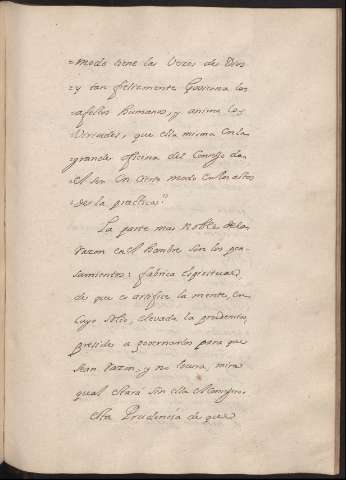 =modo tiene las Vozes de Dios
=y tan felizmente Govierna los
=afectos humanos, y anima los
=Virtudes, que ella misma con la
=grande oficina del Consejo da
=el ser Con cierto modo en los actos
=de la practica."
La parte mas Noble de la
razon en el Hombre son los pen-
samientos: fabrica Espiritual,
de que es artifice la mente, en
Cuyo Solio, elevada la prudencia,
preside a governarlos para que
sean razon, y no locura, mira
qual estará sin ella el Comp
esta Prudencia de que